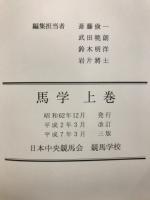 編集担当者 斎藤俊一
武田暁朗
鈴木明洋
岩片將士
馬学 上巻
昭和62年12月 発行
平成2年3月 改訂
平成7年3月 三版
日本中央競馬会 競馬学校